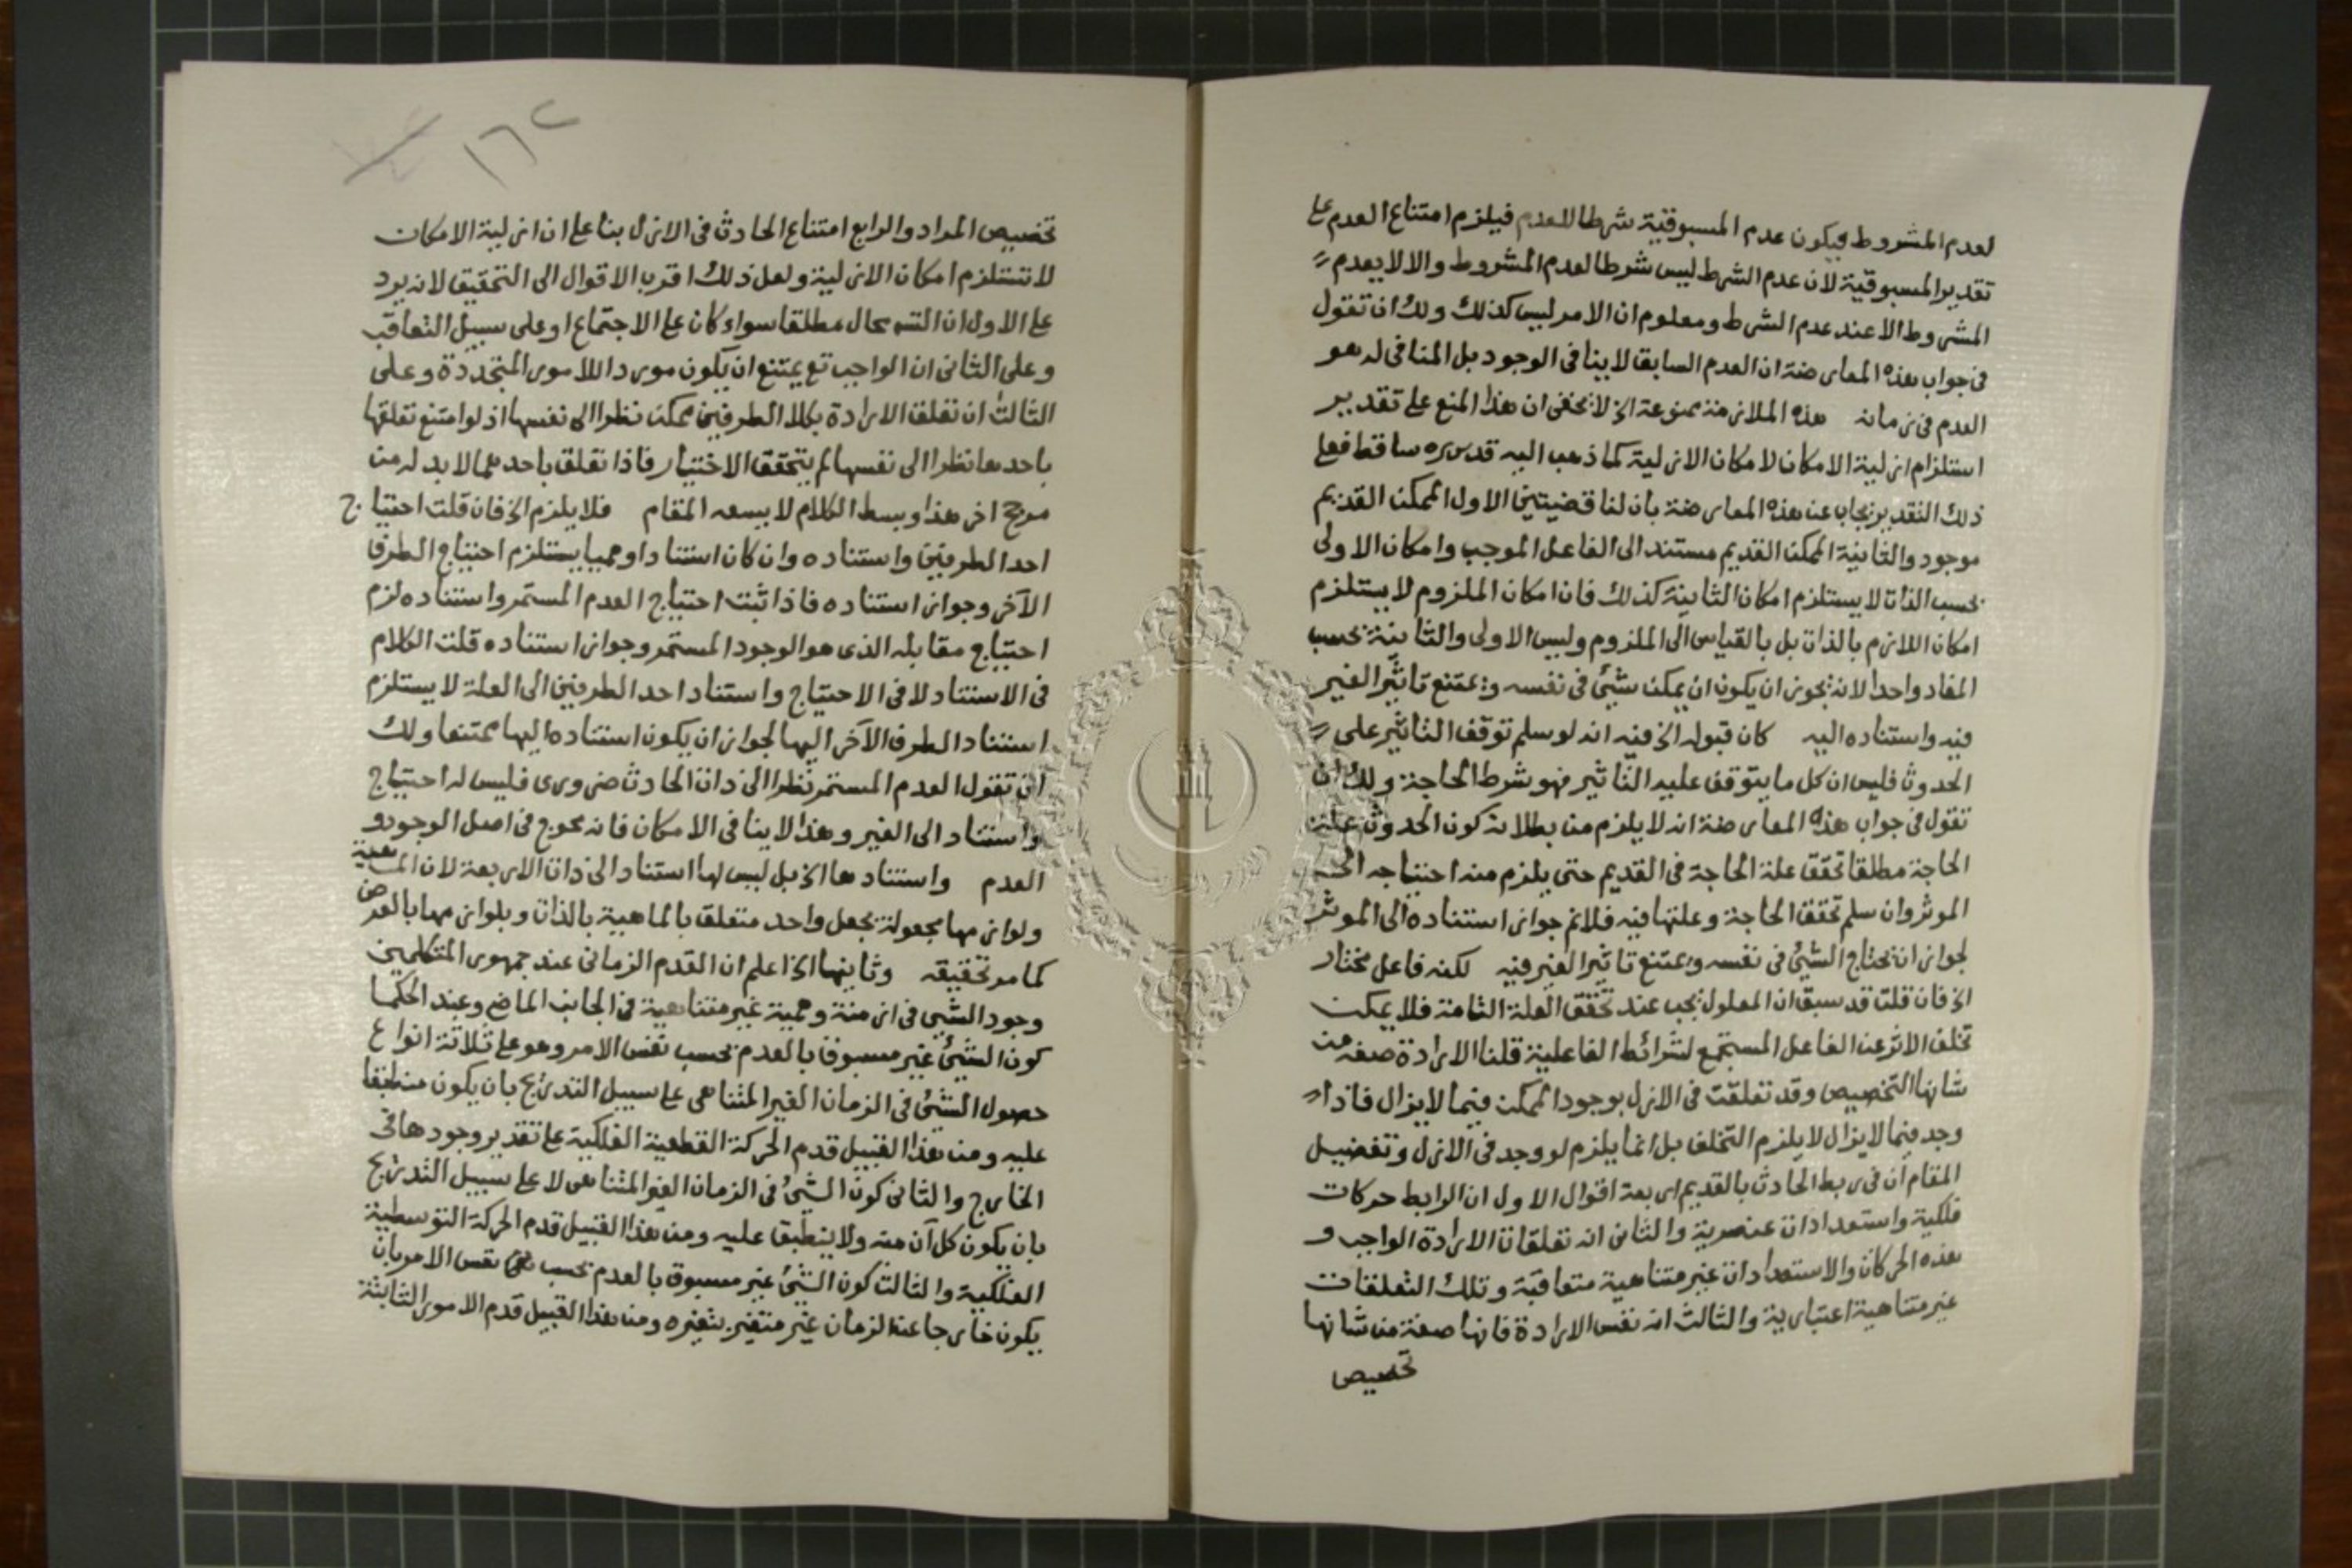 لعدم المشروط فيكون عدم المسبوقية شرطا للعدم فيلزم امتناع العدم على
تقدير المسبوقية لان عدم الشرط ليس شرطا لعدم المشروط والا لا يعدم
المشروط الا عند عدم الشرط ومعلوم ان الامر ليس كذلك ولك ان تقول
فى جواب هذه المعارضة ان العدم السابق لا ينافى الوجود بل المنافى له هو
العدم فى زمانه هذه الملازمة ممنوعة الخ لا يخفى ان هذا المنع على تقدير
استلزام ازلية الامكان لامكان الازلية كما ذهب اليه قدس سره ساقط فعلى
ذلك التقدير يجاب عن هذه المعارضة بان لنا قضيتين الاول الممكن القديم
موجود والثانية الممكن القديم مستند الى الفاعل الموجب وامكان الاولى
بحسب الذات لا يستلزم امكان الثانية كذلك فان امكان الملزوم لا يستلزم
امكان اللازم بالذات بل بالقياس الى الملزوم وليس الاولى والثانية بحسب
المفاد واحدا لانه يجوز ان يكون ان يمكن شئ فى نفسه ويمتنع تاثير الغير
فيه واستناده اليه كان قبوله الخ فيه انه لو سلم توقف التاثير على
الحدوث فليس ان كل ما يتوقف عليه التاثير فهو شرط الحاجة ولك ان
تقول فى جواب هذه المعارضة انه لا يلزم من بطلان كون الحدوث علة
الحاجة مطلقا تحقق علة الحاجة فى القديم حتى يلزم منه احتياجه الى
الموثر وان سلم تحقق الحاجة وعلتها فيه فلانم جواز استناده الى الموثر
لجواز ان يحتاج الشئ فى نفسه ويمتنع تاثير الغير فيه لكنه فاعل مختار
الخ فان قلت قد سبق ان المعلول يجب عند تحقق العلة التامة فلا يمكن
تخلف الاثر عن الفاعل المستجمع لشرائط الفاعلية قلنا الارادة صفة من
شانها التخصيص وقد تعلقت فى الازل بوجود الممكن فيما لا يزال فاذا
وجد فيما لا يزال لا يلزم التخلف بل انما يلزم لو وجد فى الازل وتفصيل
المقام ان فى ربط الحادث بالقديم اربعة اقوال الاول ان الرابط حركات
فلكية واستعدادات عنصرية والثانى انه تعلقات الارادة الواجب و
هذه الحركات والاستعدادات غير متناهية متعاقبة وتلك التعلقات
غير متناهية اعتبارية والثالث انه نفس الارادة فانها صفة من شانها
تخصيص
١٦٢
تخصيص المراد والرابع امتناع الحادث فى الازل بنا على ان ازلية الامكان
لا تستلزم امكان الازلية ولعل ذلك اقرب الاقوال الى التحقيق لانه يرد
على الاول ان التسه محال مطلقا سواء كان على الاجتماع او على سبيل التعاقب
وعلى الثانى ان الواجب تع يمتنع ان يكون موردا للامور المتجددة وعلى
الثالث ان تعلق الارادة بكلا الطرفين ممكن نظرا الى نفسها اذ لو امتنع تعلقها
باحدهما نظرا الى نفسها لم يتحقق الاختيار فاذا تعلق باحدهما لابد له من
مرجح اخر هذا وبسط الكلام لا يسعه المقام فلا يلزم الخ فان قلت احتياج
احد الطرفين واستناده وان كان استنادا وهميا يستلزم احتياج الطرف
الآخر وجواز استناده فاذا ثبت احتياج العدم المستمر واستناده لزم
احتياج مقابله الذى هو الوجود المستمر وجواز استناده قلت الكلام
فى الاستناد لا فى الاحتياج واستناد احد الطرفين الى العلة لا يستلزم
استناد الطرف الآخر اليها لجواز ان يكون استناده اليها ممتنعا ولك
ان تقول العدم المستمر نظرا الى ذات الحادث ضرورى فليس له احتياج
واستناد الى الغير وهذا لا ينافى الامكان فانه محوج فى اصل الوجود و
العدم واستنادها الخ بل ليس لها استناد الى ذات الاربعة لان الماهية
ولوازمها مجعولة بجعل واحد متعلق بالماهية بالذات وبلوازمها بالعرض
كما مر تحقيقه وثانيها الخ اعلم ان القدم الزمانى عند جمهور المتكلمين
وجود الشئ فى ازمنة وهمية غير متناهية فى الجانب الماضى وعند الحكما
كون الشئ غير مسبوق بالعدم بحسب نفس الامر وهو على ثلاثة انواع
حصول الشئ فى الزمان الغير المتناهى على سبيل التدريج بان يكون منطبقا
عليه ومن هذا القبيل قدم الحركة القطعية الفلكية على تقدير وجودها فى
الخارج والثانى كون الشئ فى الزمان الغير المتناهى لا على سبيل التدريج
بان يكون كل آن منه ولا ينطبق عليه ومن هذا القبيل قدم الحركة التوسطية
الفلكية والثالث كون الشئ غير مسبوق بالعدم بحسب نفس الامر بان
يكون خارجا عن الزمان غير متغير بتغيره ومن هذا القبيل قدم الامور الثابتة